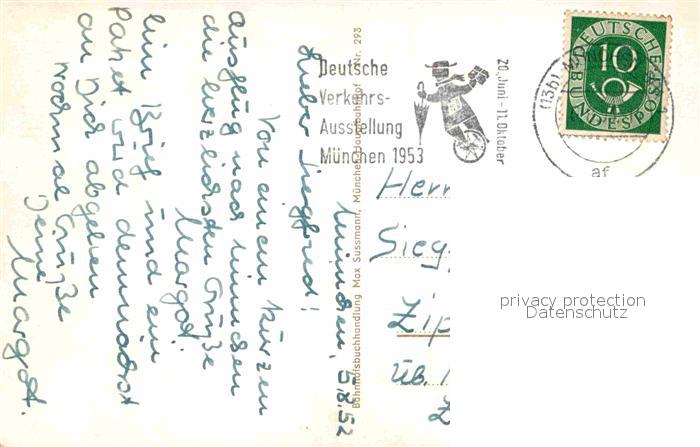 München, 5.8.52
Lieber Siegfried!
Von einem kurzen
Ausflug nach München
die herzlichsten Grüße
Margot.
Ein Brief und ein
Paket wird demnächst
an Dich abgehen
nochmal Grüße
Deine
Margot.
Bahnhofsbuchhandlung Max Sussmann, München, Hauptbahnhof Nr. 293
Deutsche
Verkehrs-
Ausstellung
München 1953
20. Juni - 11. Oktober
(13b) MÜNCHEN
af
DEUTSCHE
10
BUNDESPOST
Herrn
Sieg
Zip
üb.
privacy protection
Datenschutz